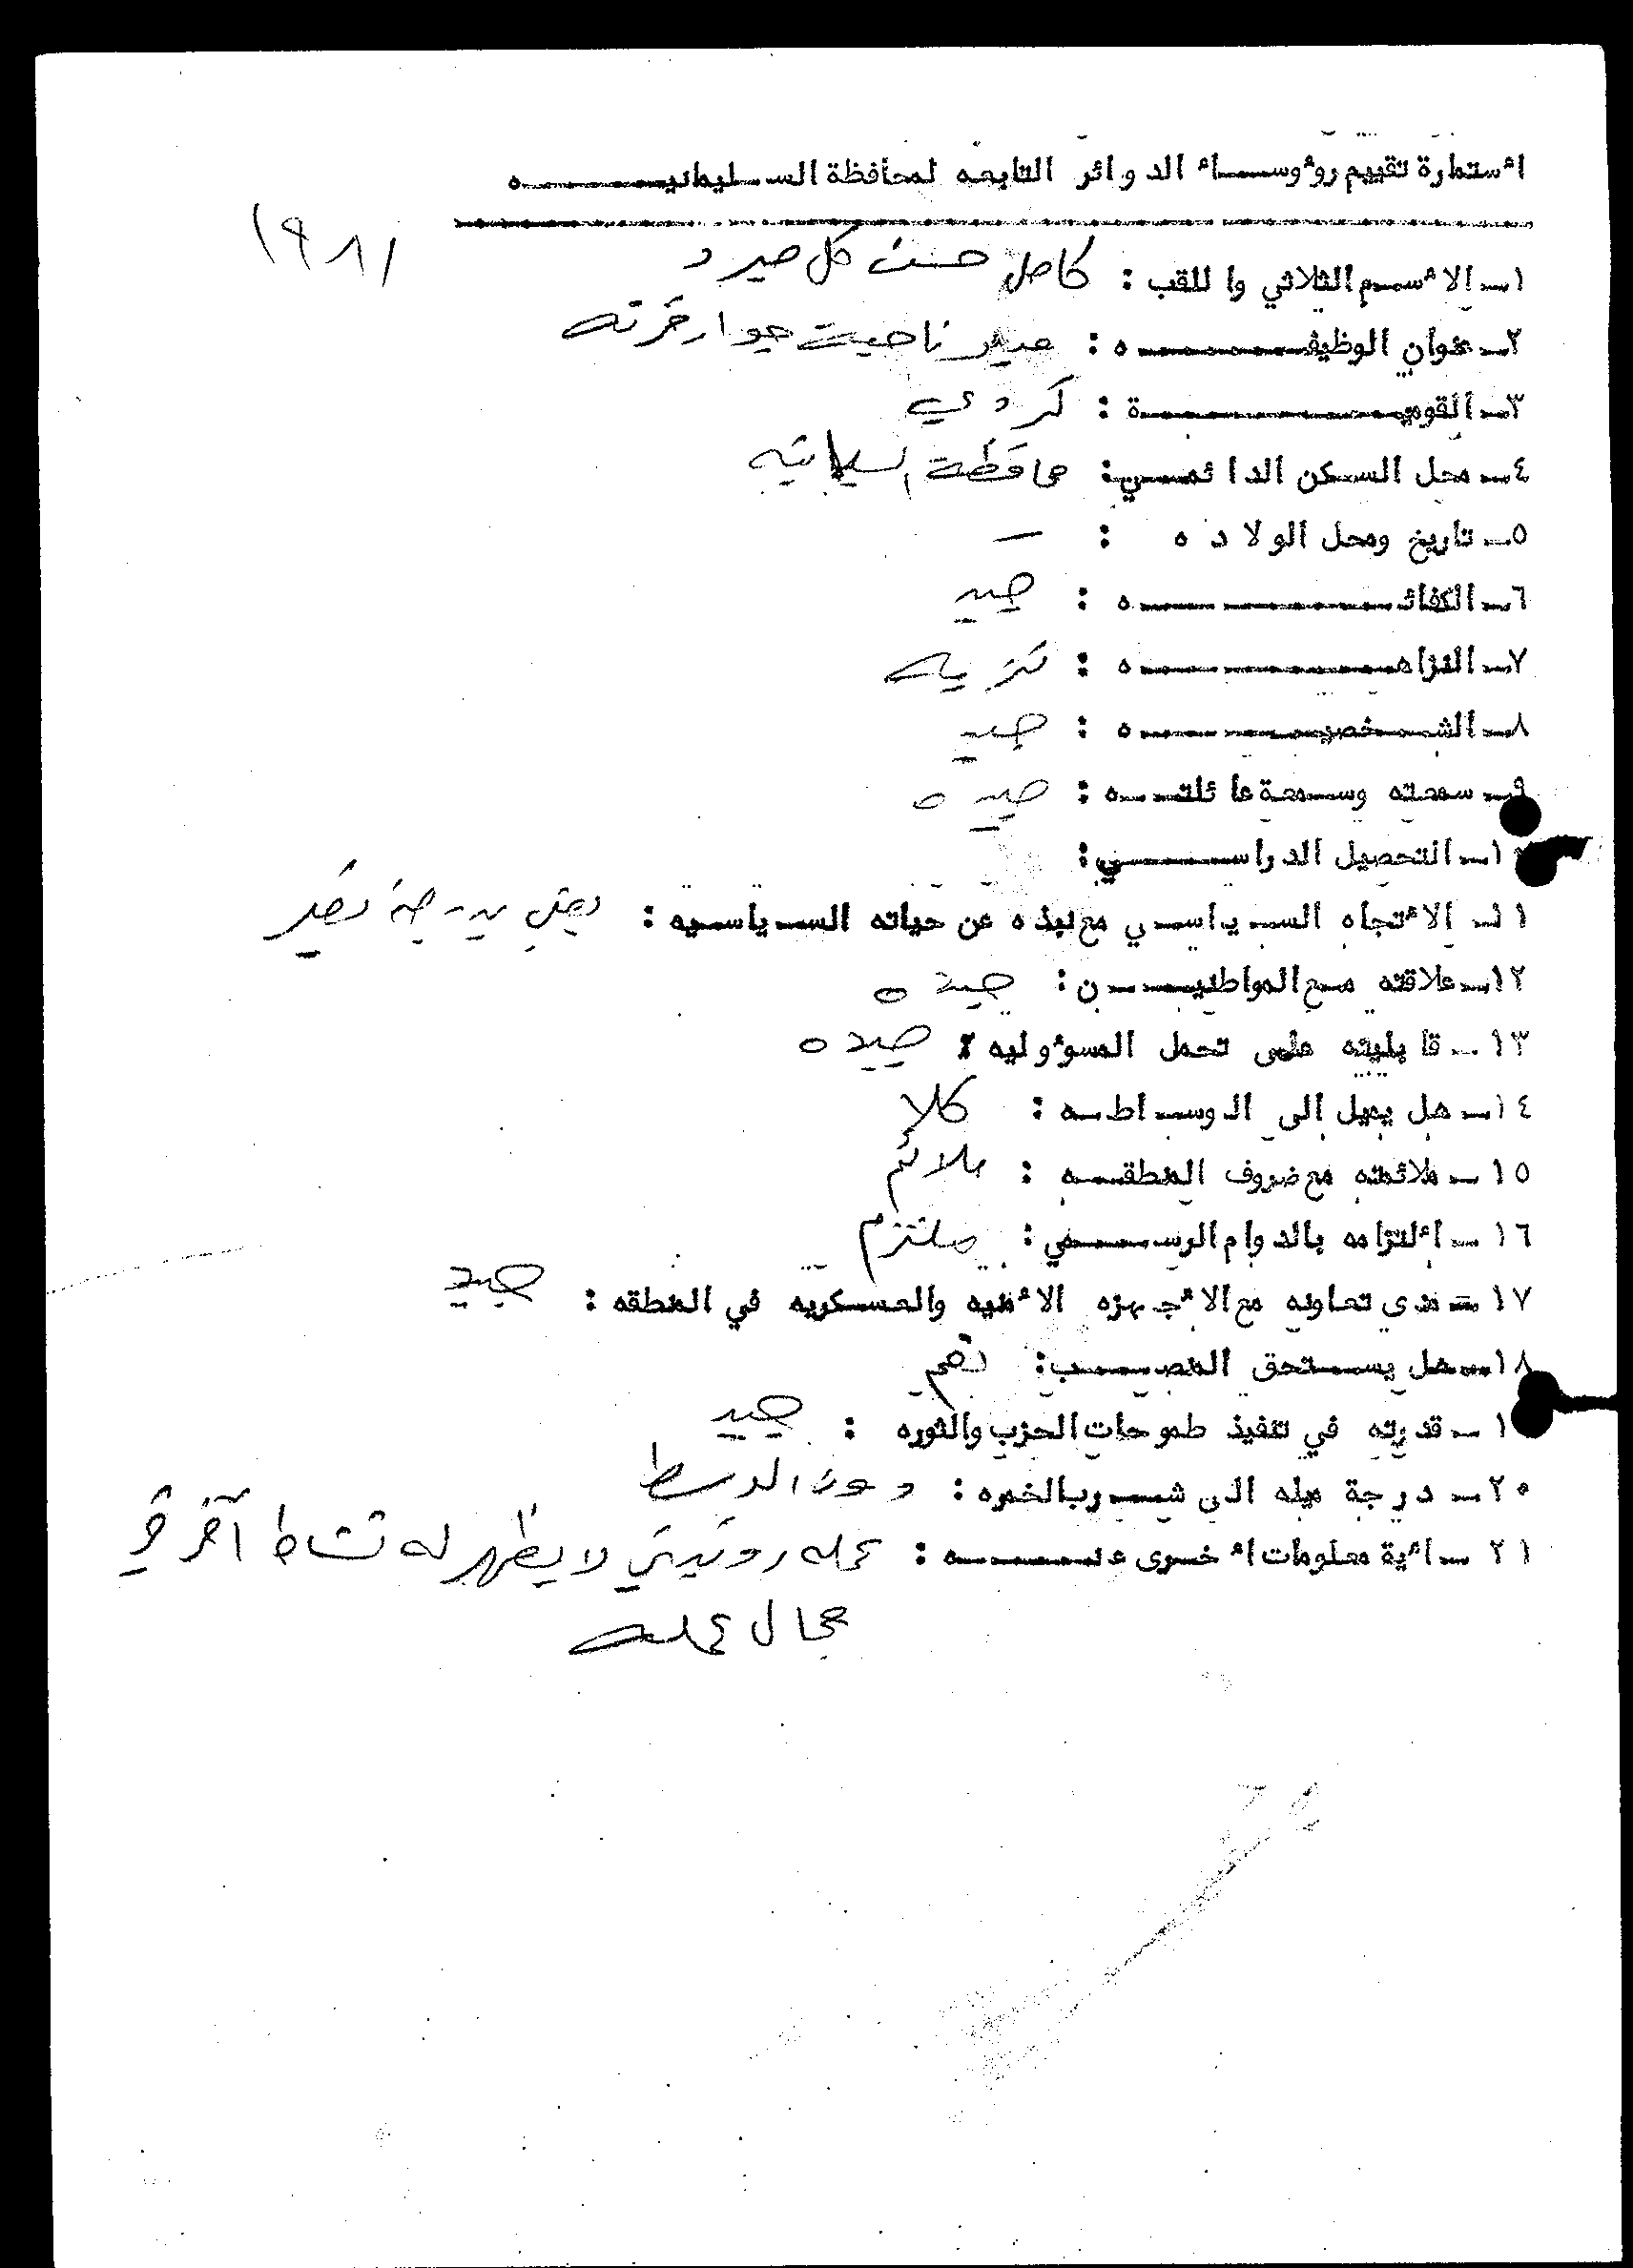 استمارة تقييم روؤوساء الدوائر التابعه لمحافظة السليمانيه
١٩٨١
١- الاسم الثلاثي واللقب : كامل حسن كل ميرد
٢- عنوان الوظيفه : مدير ناحية جوارقرنه
٣- القومية : كردي
٤- محل السكن الدائمي : محافظة السليمانيه
٥- تاريخ ومحل الولاده : -
٦- الكفائه : جيد
٧- النزاهه : نزيه
٨- الشخصيه : جيد
٩- سمعته وسمعة عائلته : جيده
١٠- التحصيل الدراسي :
١١- الاتجاه السياسي مع نبذه عن حياته السياسيه : بعثي بدرجة نصير
١٢- علاقته مع المواطنين : جيده
١٣- قابليته على تحمل المسوؤوليه : جيده
١٤- هل يميل الى الوساطه : كلا
١٥- ملائمته مع ضروف المنطقه : ملائم
١٦- التزامه بالدوام الرسمي : ملتزم
١٧- مدى تعاونه مع الاجهزه الامنيه والعسكريه في المنطقه : جيد
١٨- هل يستحق المنصب : نعم
١- قدرته في تنفيذ طموحات الحزب والثوره : جيد
٢٠- درجة ميله الى شرب الخمره : دون الوسط
٢١- اية معلومات اخرى عنه : عمله روتيني لا يظهر له نشاط آخر في
مجال عمله